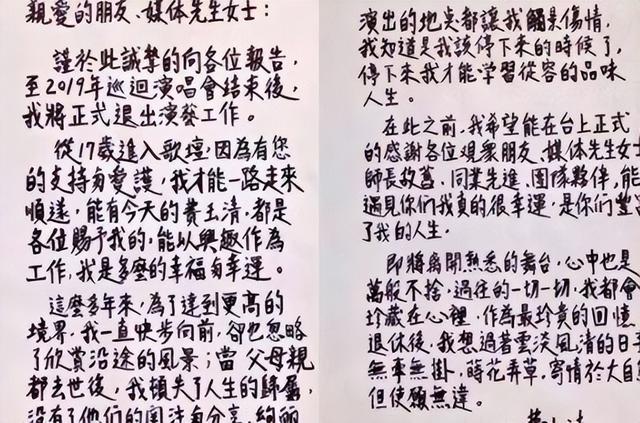 親愛的朋友、媒体先生女士：
謹於此誠摯的向各位報告，
至2019年巡迴演唱會結束後，
我將正式退出演藝工作。
從17歲進入歌壇，因為有您
的支持與愛護，我才能一路走來
順遂，能有今天的費玉清，都是
各位賜予我的，能以興趣作為
工作，我是多麼的幸福與幸運。
這麼多年來，為了達到更高的
境界，我一直快步向前，卻也忽略
了欣賞沿途的風景；當父母親
都去世後，我頓失了人生的歸屬，
沒有了他們的關注與分享，絢麗
演出的地點都讓我觸景傷情，
我知道是我該停下來的時候了，
停下來我才能学習從容的品味
人生。
在此之前，我希望能在台上正式
的感謝各位現衆朋友、媒体先生女士
師長故舊、同業先進、團隊夥伴，能
遇見你們我真的很幸運，是你們豐
了我的人生。
即將離開熟悉的舞台，心中也是
萬般不捨，過往的一切一切，我都會
珍藏在心裡，作為最珍貴的回憶
退休後，我想過著雲淡風清的日子
無牽無掛，蒔花弄草，寄情於大自
但使願無違。